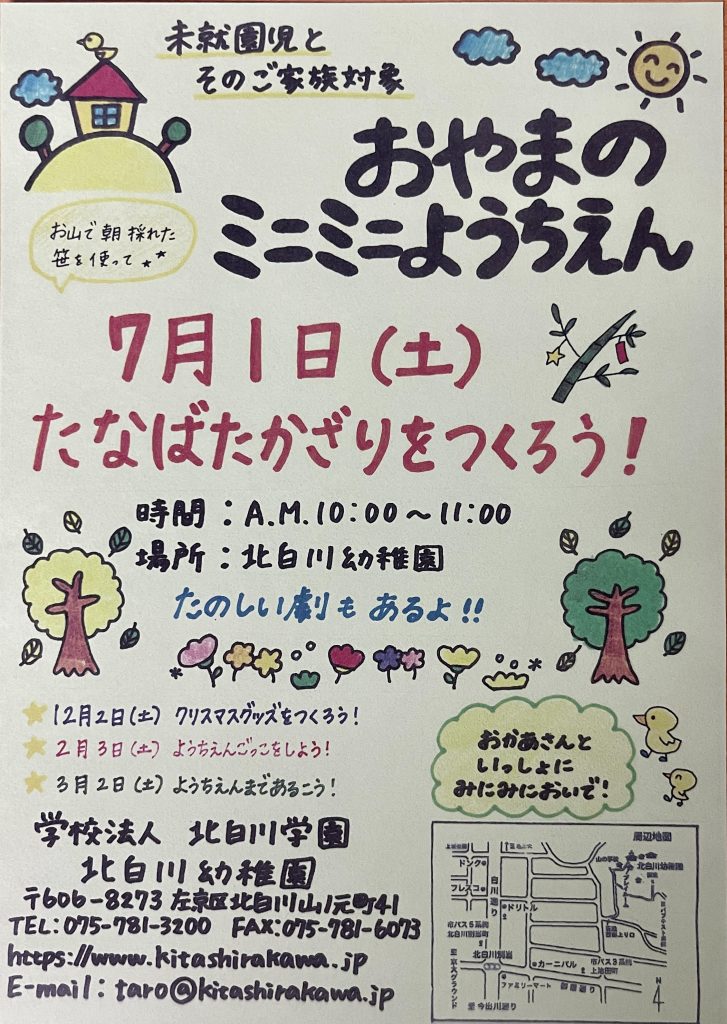 未就園児と
そのご家族対象
おやまの
ミニミニようちえん
お山で朝採れた
笹を使って
7月1日(土)
たなばたかざりをつくろう!
時間:A.M.10:00~11:00
場所:北白川幼稚園
たのしい劇もあるよ!!
12月2日(土) クリスマスグッズをつくろう!
2月3日(土) ようちえんごっこをしよう!
3月2日(土) ようちえんまであるこう!
おかあさんと
いっしょに
みにみにおいで!
学校法人 北白川学園
北白川幼稚園
〒606-8273 左京区北白川山ノ元町41
TEL:075-781-3200 FAX:075-781-6073
https://www.kitashirakawa.jp
E-mail:taro@kitashirakawa.jp
周辺地図
山の学校
北白川幼稚園
ドンク
フレスコ
白川通り
ドリトル
市バス5系統
北白川別当町
北白川別当
カーニバル
市バス3系統
上池田町
ファミリーマート
御蔭通り
至今出川通り
N